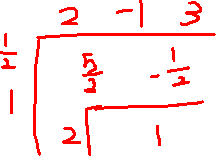 2 -1 3
1/2 5/2 -1/2
1 2 1